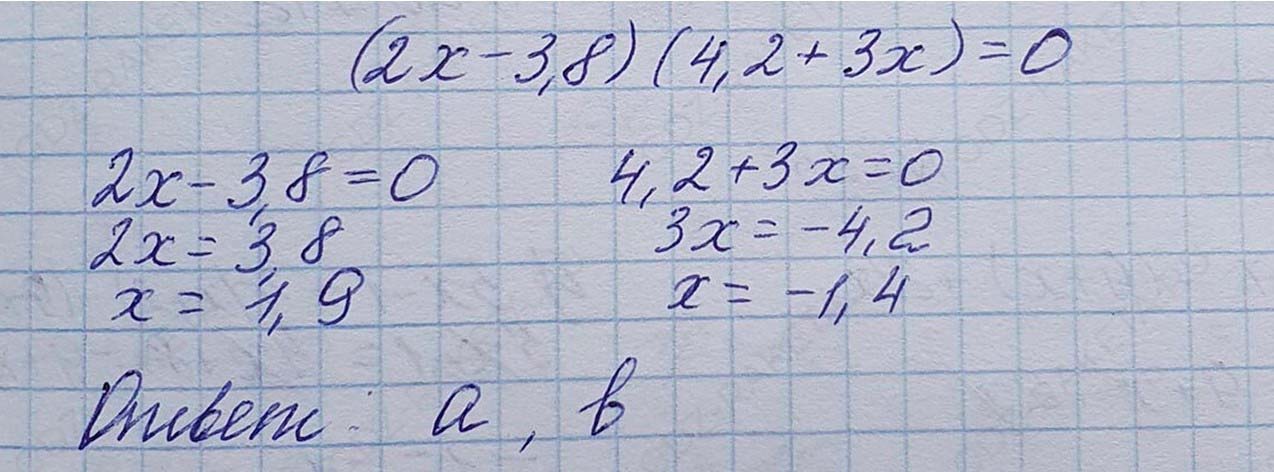 (2x-3,8)(4,2+3x)=0
2x-3,8=0 4,2+3x=0
2x=3,8 3x=-4,2
x=1,9 x=-1,4
Ответ: а, в